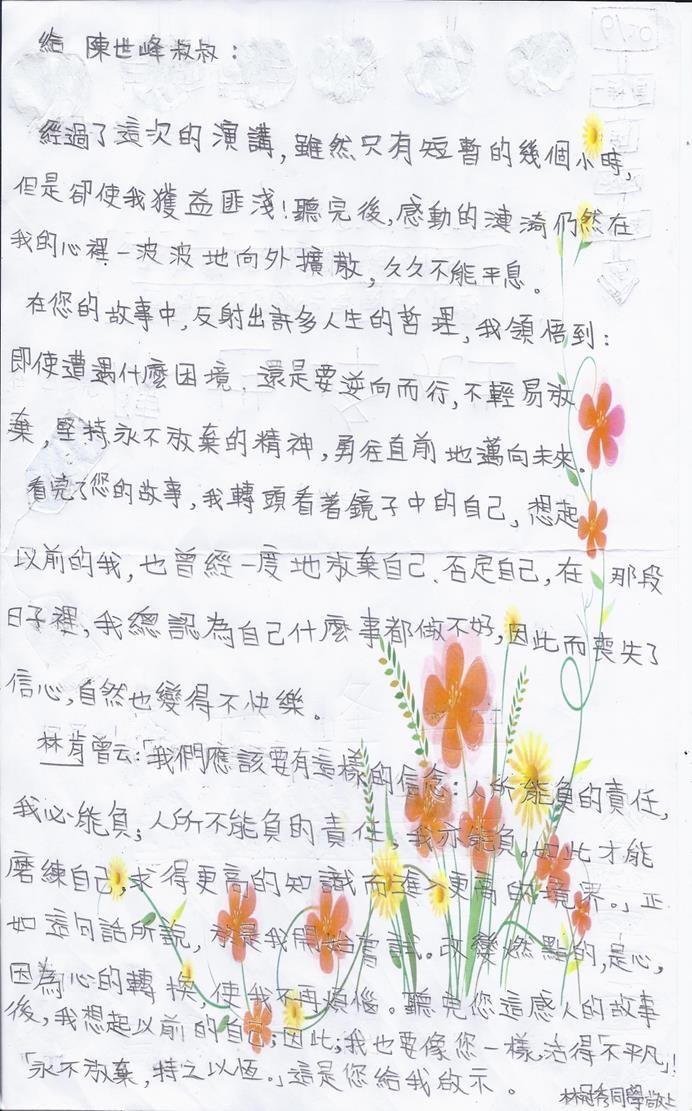 給 陳世峰叔叔：
經過了這次的演講，雖然只有短暫的幾個小時，
但是卻使我獲益匪淺！聽完後，感動的漣漪仍然在
我的心裡一波波地向外擴散，久久不能平息。
在您的故事中，反射出許多人生的哲理，我領悟到：
即使遭遇什麼困境，還是要逆向而行，不輕易放
棄，堅持永不放棄的精神，勇往直前地邁向未來。
看完了您的故事，我轉頭看著鏡子中的自己，想起
以前的我，也曾經一度地放棄自己、否定自己，在那段
日子裡，我總認為自己什麼事都做不好，因此而喪失了
信心，自然也變得不快樂。
林肯曾云：「我們應該要有這樣的信念：人所能負的責任，
我必能負；人所不能負的責任，我亦能負。如此才能
磨練自己，求得更高的知識而進入更高的境界。」正
如這句話所說，於是我開始嘗試。改變燃點的，是心，
因為心的轉換，使我不再煩惱。聽完您這感人的故事
後，我想起以前的自己；因此；我也要像您一樣，活得「不平凡」！
「永不放棄，持之以恆。」這是您給我啟示。
同學敬上